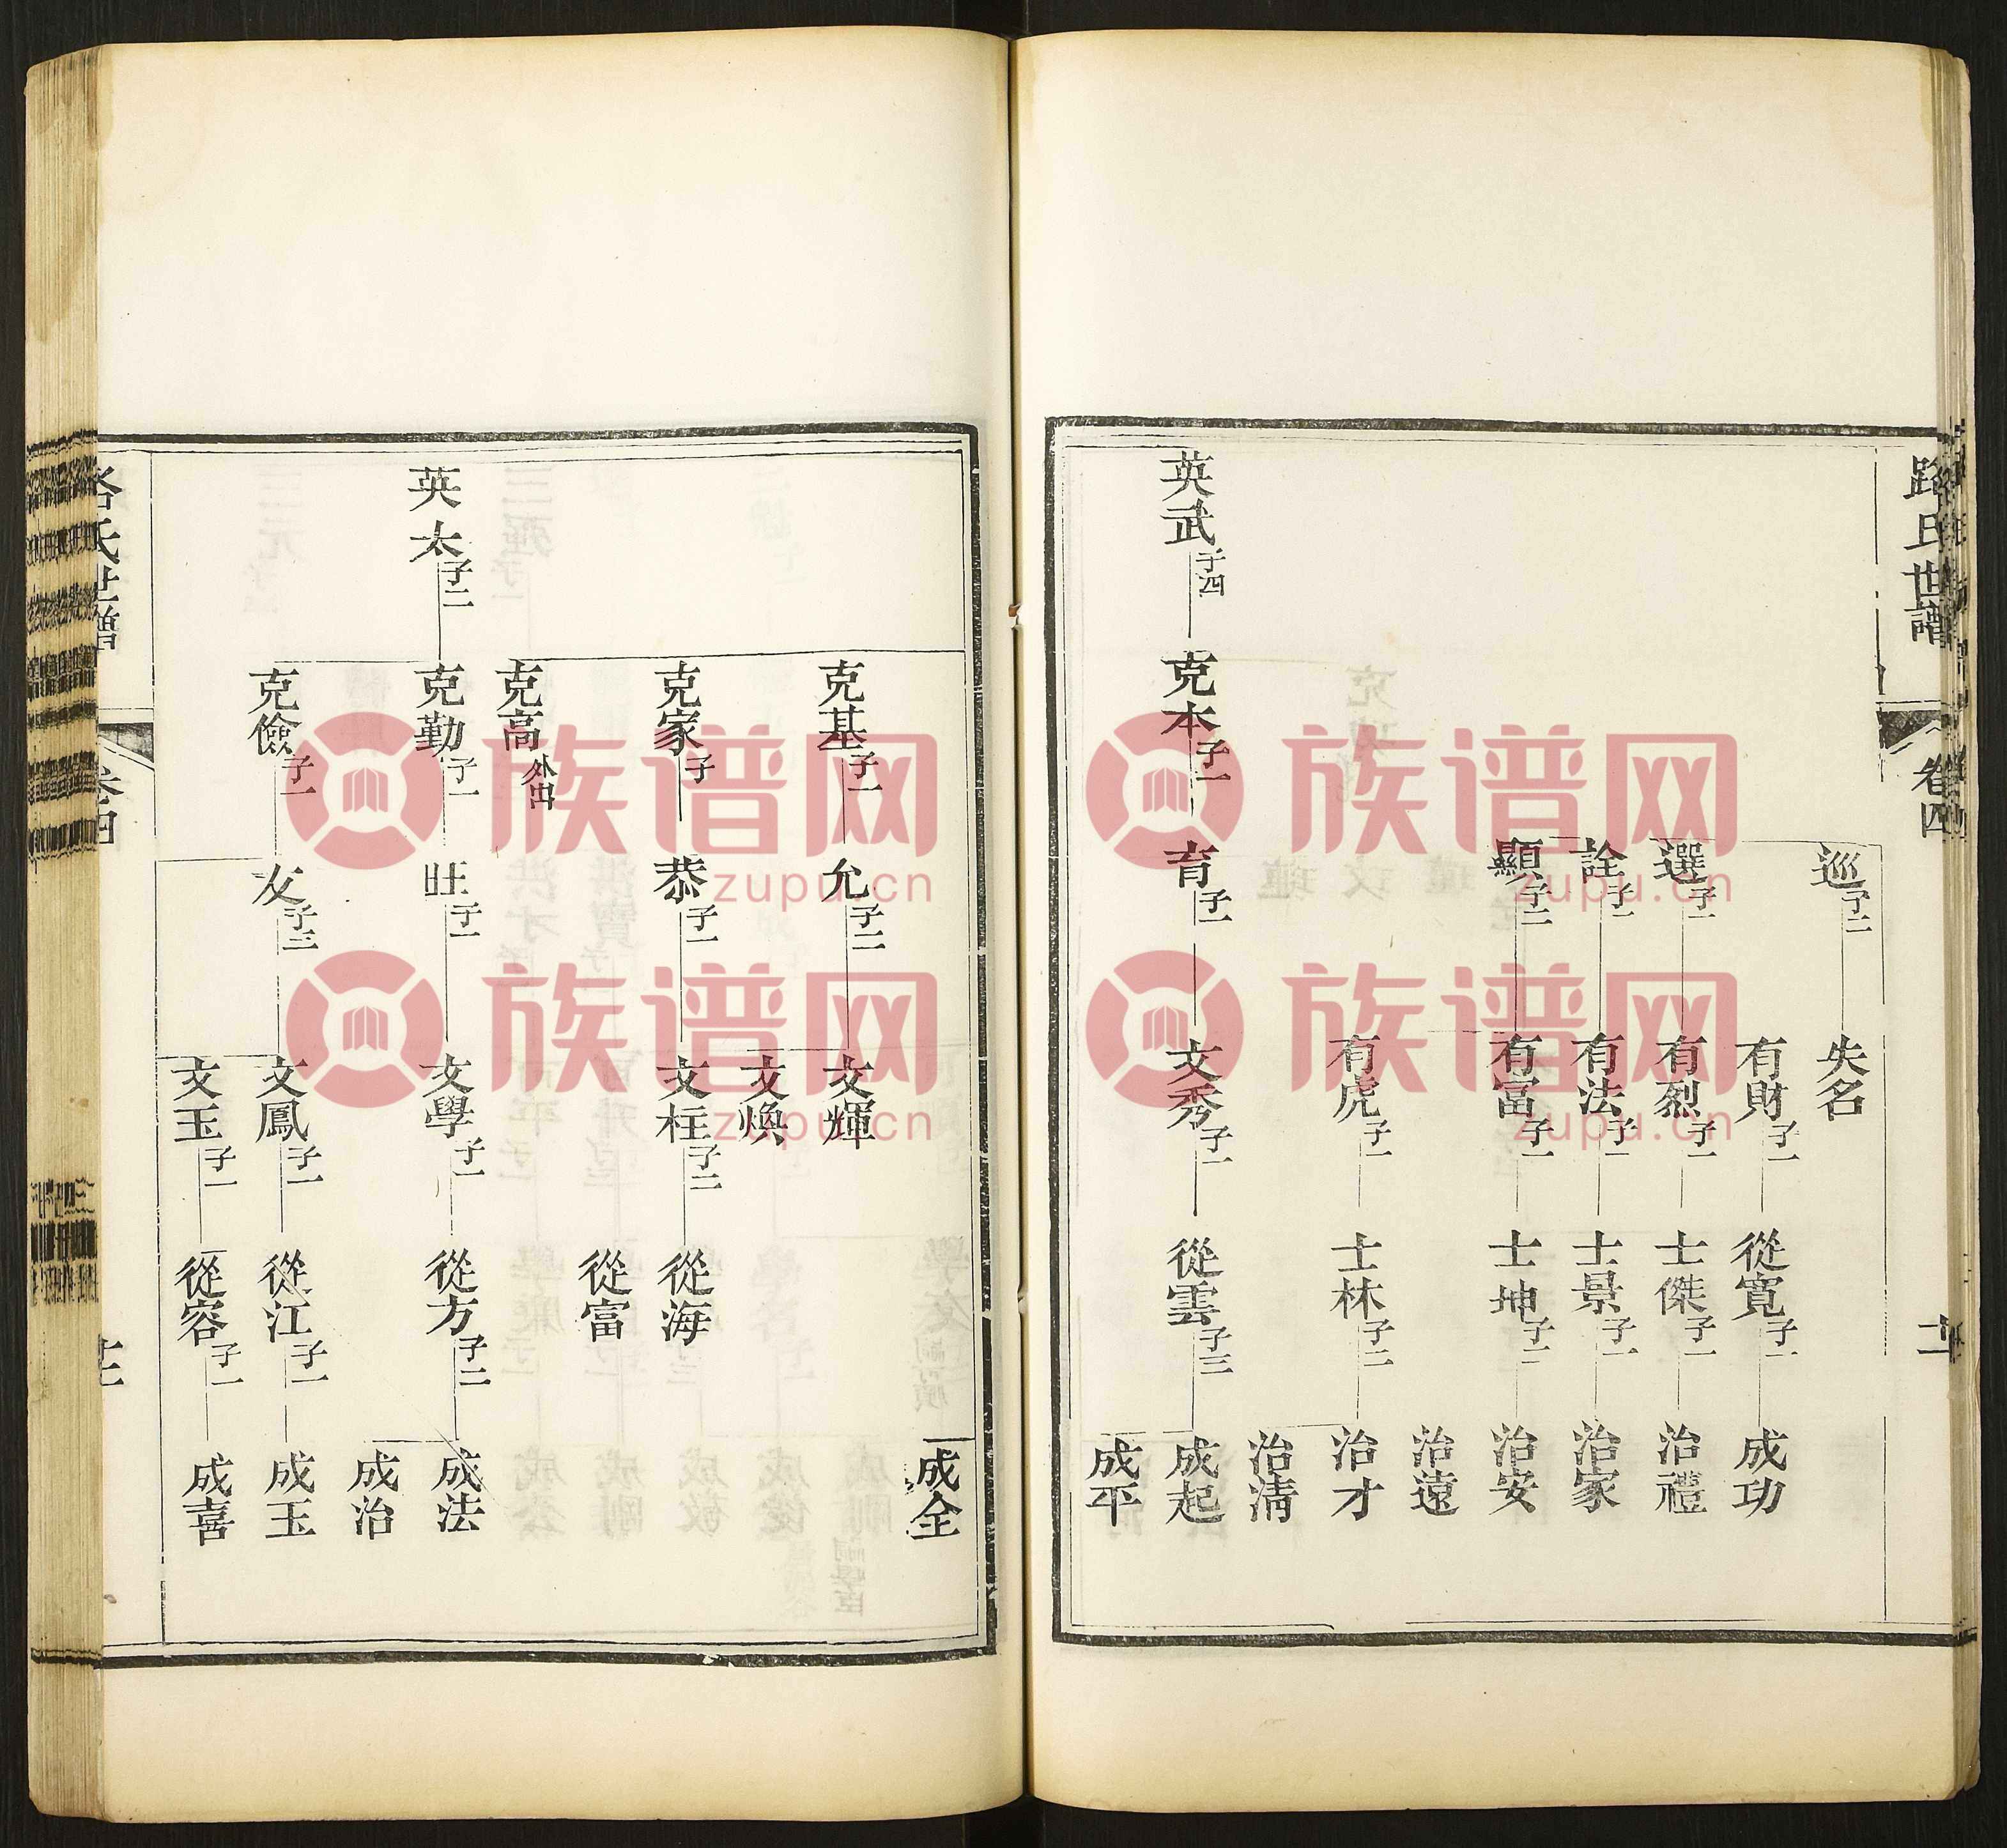 路氏世譜
卷四
巡子二
失名
有財子一
從寬子一
成功
選子一
有烈子一
士傑子一
治禮
詮子一
有法子一
士景子一
治家
顯子二
有富子一
士坤子二
治安
治遠
有虎子一
士林子二
治才
治清
英武子四
克本子一
育子一
文秀子一
從雲子三
成起
成平
成全
克基子一
允子二
文輝
文煥
克家子一
恭子一
文柱子二
從海
從富
克高外出
英太子二
克勤子一
旺子一
文學子一
從方子二
成法
成治
克儉子一
友子三
文鳳子一
從江子一
成玉
文玉子一
從容子一
成喜
路氏世譜
卷四
族谱网
zupu.cn
族谱网
zupu.cn
族谱网
zupu.cn
族谱网
zupu.cn